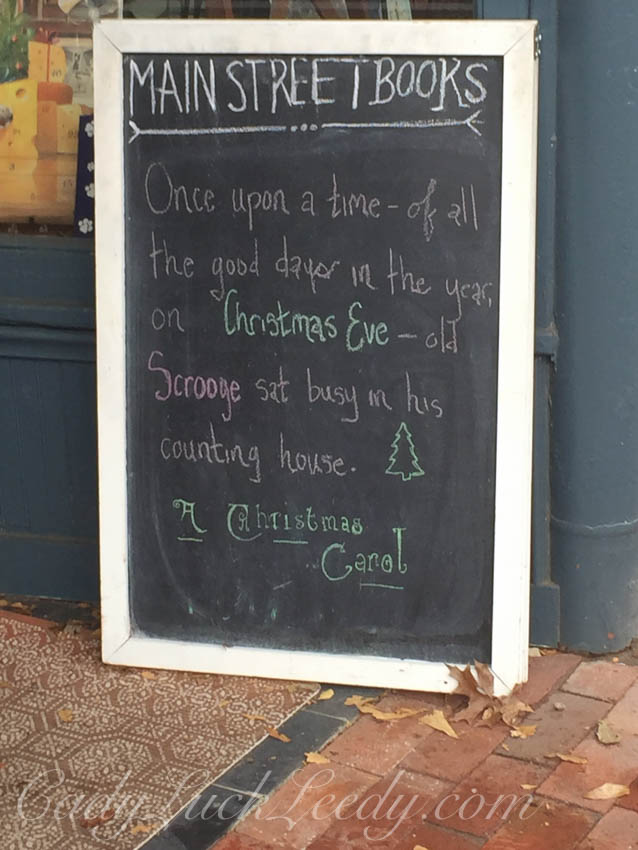 MAIN STREET BOOKS
Once upon a time - of all
the good days in the year,
on Christmas Eve - old
Scrooge sat busy in his
counting house.
A Christmas
Carol
CadyLuckLeedy.com